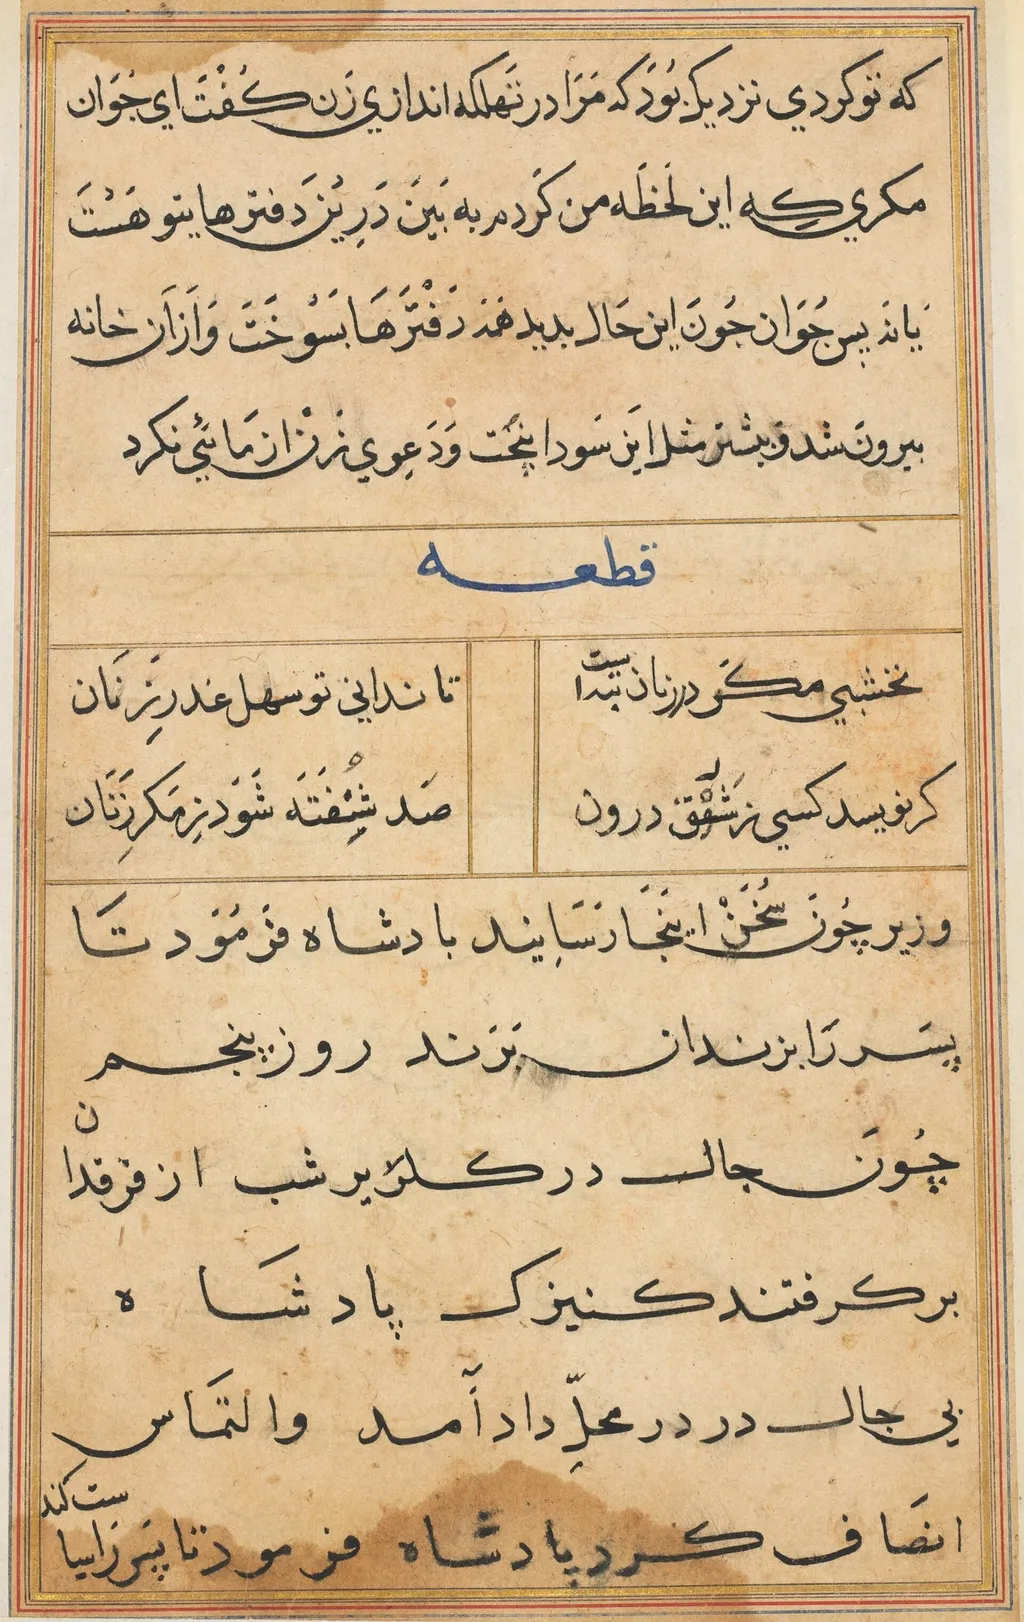 که تو کردي نزدیک بود که مرا در تهلکه اندازي زن کفت اي جوان
مکري که این لحظه من کردم به بین درین دفترها بتو هست
یا نه پس جوان جون این حال بدید همه دفترها بسوخت و ازان خانه
بیرون شد و بیشتر مثل این سودا نپخت و دعوي زن از ما نئي نکرد
قطعه
نخشبي مکر در زنان بیدا ست
تا نداني تو سهل غدر زنان
کر نویسد کسي ز شق قلم درون
صد شیفته شود ز مکر زنان
وزیر چون سخن اینجا رسایند بادشاه فرمود تا
پسر را بزندان برند روز پنجم
چون جال در کلریر شب از فرقدان
بر کرفتند کنیزک پادشاه
بي جال در در محلّ داد آمد والتماس
انصاف کرد پادشاه فرمود تا پسر را سیا ست کند